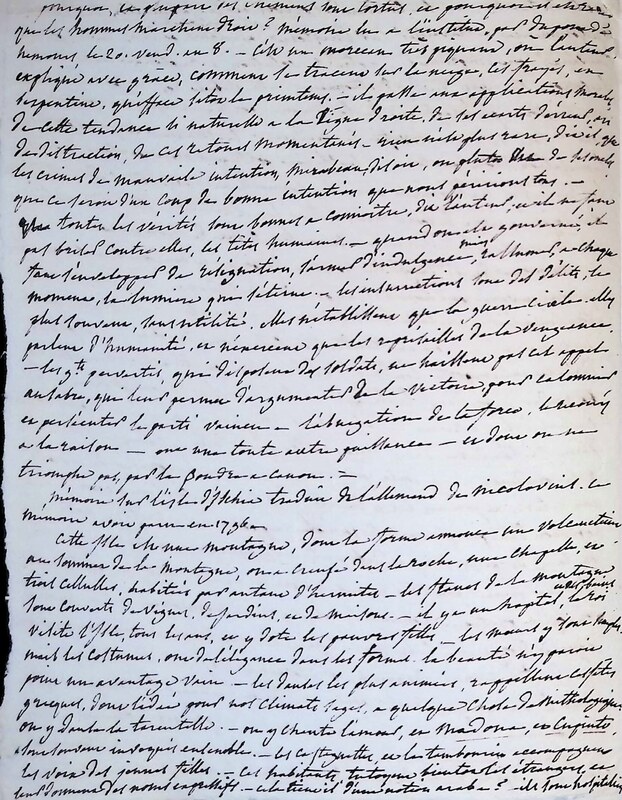 pourquoi, la plupart des chemins sont tortus, et pourquoi il est rare
que les hommes marchent droit? mémoire lu a l'institut, par Dupont de
Nemours, le 20. vend. an 8. - C'est un morceau très piquant, ou l'auteur
explique avec grace, comment se tracent sur la neige, les trajets, en
serpentine, qu'efface sitot le printems. - il passe aux applications morales
de cette tendance si naturelle a la ligne droite, de ses ecarts d'erreur, ou
de distraction, de ces retours momentanés - rien n'est plus rare, dit-il, que
les crimes de mauvaise intention, mirabeau disoit, on plutot de
que ce seroit d'un coup de bonne intention que nous péririons tous. -
toutes les vérités sont bonnes a connoitre, dit l'auteur, et il ne faut
pas briser contre elles, les têtes humaines. - quand on a le gouverné, il
faut s'envelopper de résignation, s'armer d'indulgence, mais rallumer, a chaque
moment, la lumiere qui s'éteint - les insurrections sont des délits, le
plus souvent, sans utilité. elles n'établissent que la guerre civile. elles
parlent d'humanité, et n'exercent que les représailles de la vengeance,
- les g.ts pervertis, qui disposent des soldats, ne haissent pas cet appel
au sabre, qui leur permet d'argumenter de la victoire, pour calomnier
et persécuter le parti vaincu - l'abnégation de la force, le recours
a la raison - ont une toute autre puissance - et dont on ne
triomphe pas, par la poudre a canon. -
mémoire sur l'isle d'Ischia traduit de l'allemand de nicolovius. ce
mémoire avoit paru en 1796.
Cette isle est une montagne, dont la forme annonce un volcan éteint
au sommet de la montagne, on a creusé dans la roche, une chapelle, et
trois cellules, habités par autant d'hermites - les flancs de la montagne
sont couverts de vignes, de jardins, et de maisons. - il y a un hopital, et des bains le Roi
visite l'isle, tous les ans, et y dote les pauvres filles. - les moeurs y sont simples,
mais les costumes, ont de l'élégance dans les formes. la beauté n'y passe
pour un avantage vain - les danses les plus animées, rappellent ces fêtes
grecques, dont l'idée pour nos climats sages, a quelque chose de mithologique
on y danse la tarentelle. - on y chante l'amour, et madone, et Cupido,
sont souvent invoqués ensemble. - les castagnettes, et les tambourins accompagnent
les voix des jeunes filles - les habitants, tutoyent bientot les étrangers, et
leur donnent des noms expressifs - cela tient il d'une nation arabe? - ils sont hospitaliers